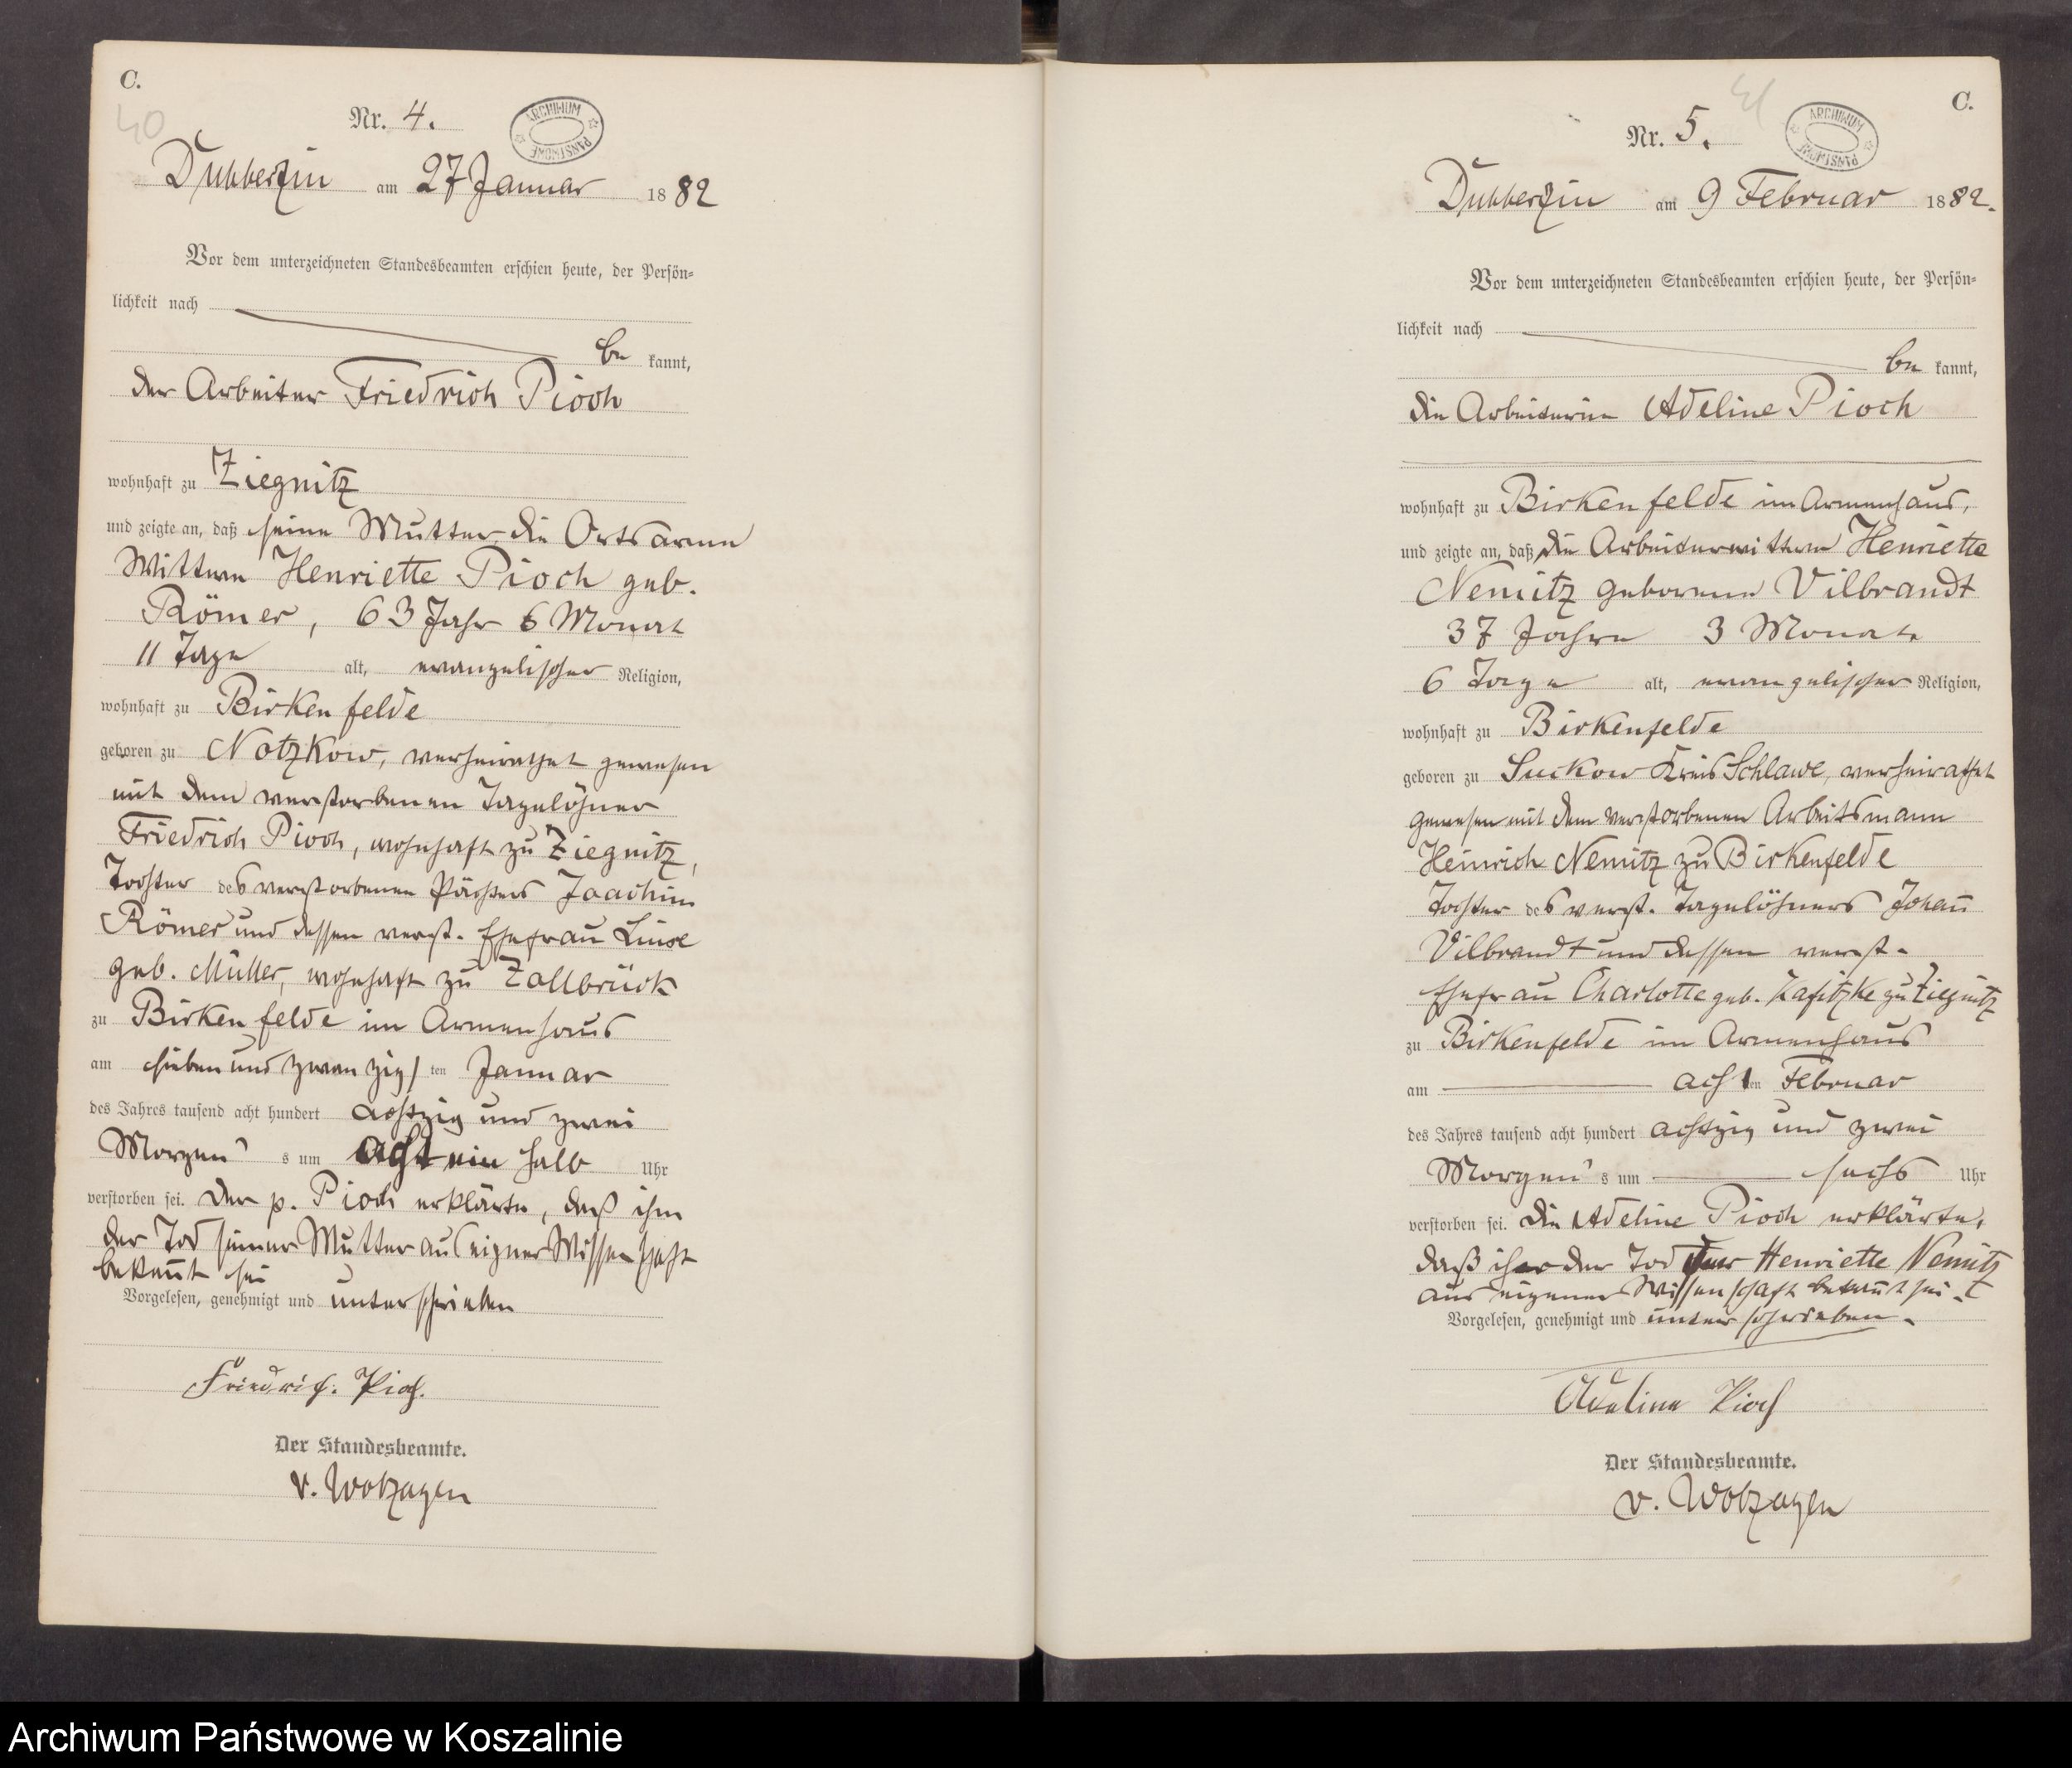 C.
40
Nr. 4.
ARCHIWUM PAŃSTWOWE
Dubberzin am 27 Januar 1882
Vor dem unterzeichneten Standesbeamten erschien heute, der Persön-
lichkeit nach
be kannt,
der Arbeiter Friedrich Pioch
wohnhaft zu Ziegnitz
und zeigte an, daß seine Mutter, die Ortsarme
Wittwe Henriette Pioch geb.
Römer, 63 Jahr 6 Monat
11 Tage alt, evangelischer Religion,
wohnhaft zu Birkenfelde
geboren zu Notzkow, verheirathet gewesen
mit dem verstorbenen Tagelöhner
Friedrich Pioch, wohnhaft zu Ziegnitz,
Tochter des verstorbenen Pächters Joachim
Römer und dessen verst. Ehefrau Luise
geb. Müller, wohnhaft zu Zollbrück
zu Birkenfelde im Armenhaus
am sieben und zwanzig ten Januar
des Jahres tausend acht hundert achtzig und zwei
Morgen's um acht ein halb Uhr
verstorben sei. Der p. Pioch erklärte, daß ihm
der Tod seiner Mutter aus eigner Wissenschaft
bekannt sei
Vorgelesen, genehmigt und unterschrieben
Friedrich Pioch.
Der Standesbeamte.
v. Wolzogen
C.
41
Nr. 5.
ARCHIWUM PAŃSTWOWE
Dubberzin am 9 Februar 1882.
Vor dem unterzeichneten Standesbeamten erschien heute, der Persön-
lichkeit nach
be kannt,
die Arbeiterin Adeline Pioch
wohnhaft zu Birkenfelde im Armenhaus,
und zeigte an, daß die Arbeiterwittwe Henriette
Nemitz geborene Vilbrandt
37 Jahre 3 Monate
6 Tage alt, evangelischer Religion,
wohnhaft zu Birkenfelde
geboren zu Suckow Kreis Schlawe, verheirathet
gewesen mit dem verstorbenen Arbeitsmann
Heinrich Nemitz zu Birkenfelde
Tochter des verst. Tagelöhners Johann
Vilbrandt und dessen verst.
Ehefrau Charlotte geb. zu Ziegnitz
zu Birkenfelde im Armenhaus
am acht ten Februar
des Jahres tausend acht hundert achtzig und zwei
Morgen's um sechs Uhr
verstorben sei. Die Adeline Pioch erklärte,
daß ihr der Tod der Henriette Nemitz
aus eigener Wissenschaft bekannt sei.
Vorgelesen, genehmigt und unterschrieben.
Adeline Pioch
Der Standesbeamte.
v. Wolzogen
Archiwum Państwowe w Koszalinie